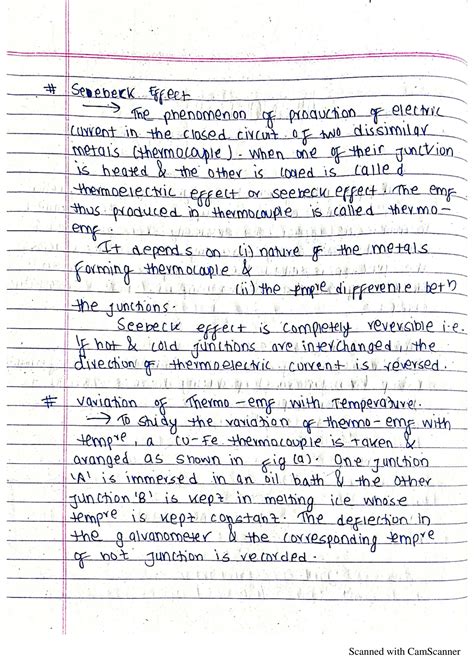 # Seebeck Effect
→ The phenomenon of production of electric
current in the closed circuit of two dissimilar
metals (thermocaple). When one of their junction
is heated & the other is cooled is called
thermoelectric effect or seebeck effect. The emf
thus produced in thermocouple is called thermo-
emf.
It depends on (i) nature of the metals
forming thermocaple &
(ii) the tmpre difference betn
the junctions.
Seebeck effect is completely reversible i.e.
If hot & cold junctions are interchanged, the
direction of thermoelectric current is reversed.
# Variation of Thermo-emf with Temperature.
→ To study the variation of thermo-emf with
tempre, a Cu-Fe thermocouple is taken &
aranged as shown in fig (a). One junction
'A' is immersed in an oil bath & the other
junction 'B' is kept in melting ice whose
tempre is kept constant. The deflection in
the galvanometer & the corresponding tempre
of hot junction is recorded.
Scanned with CamScanner